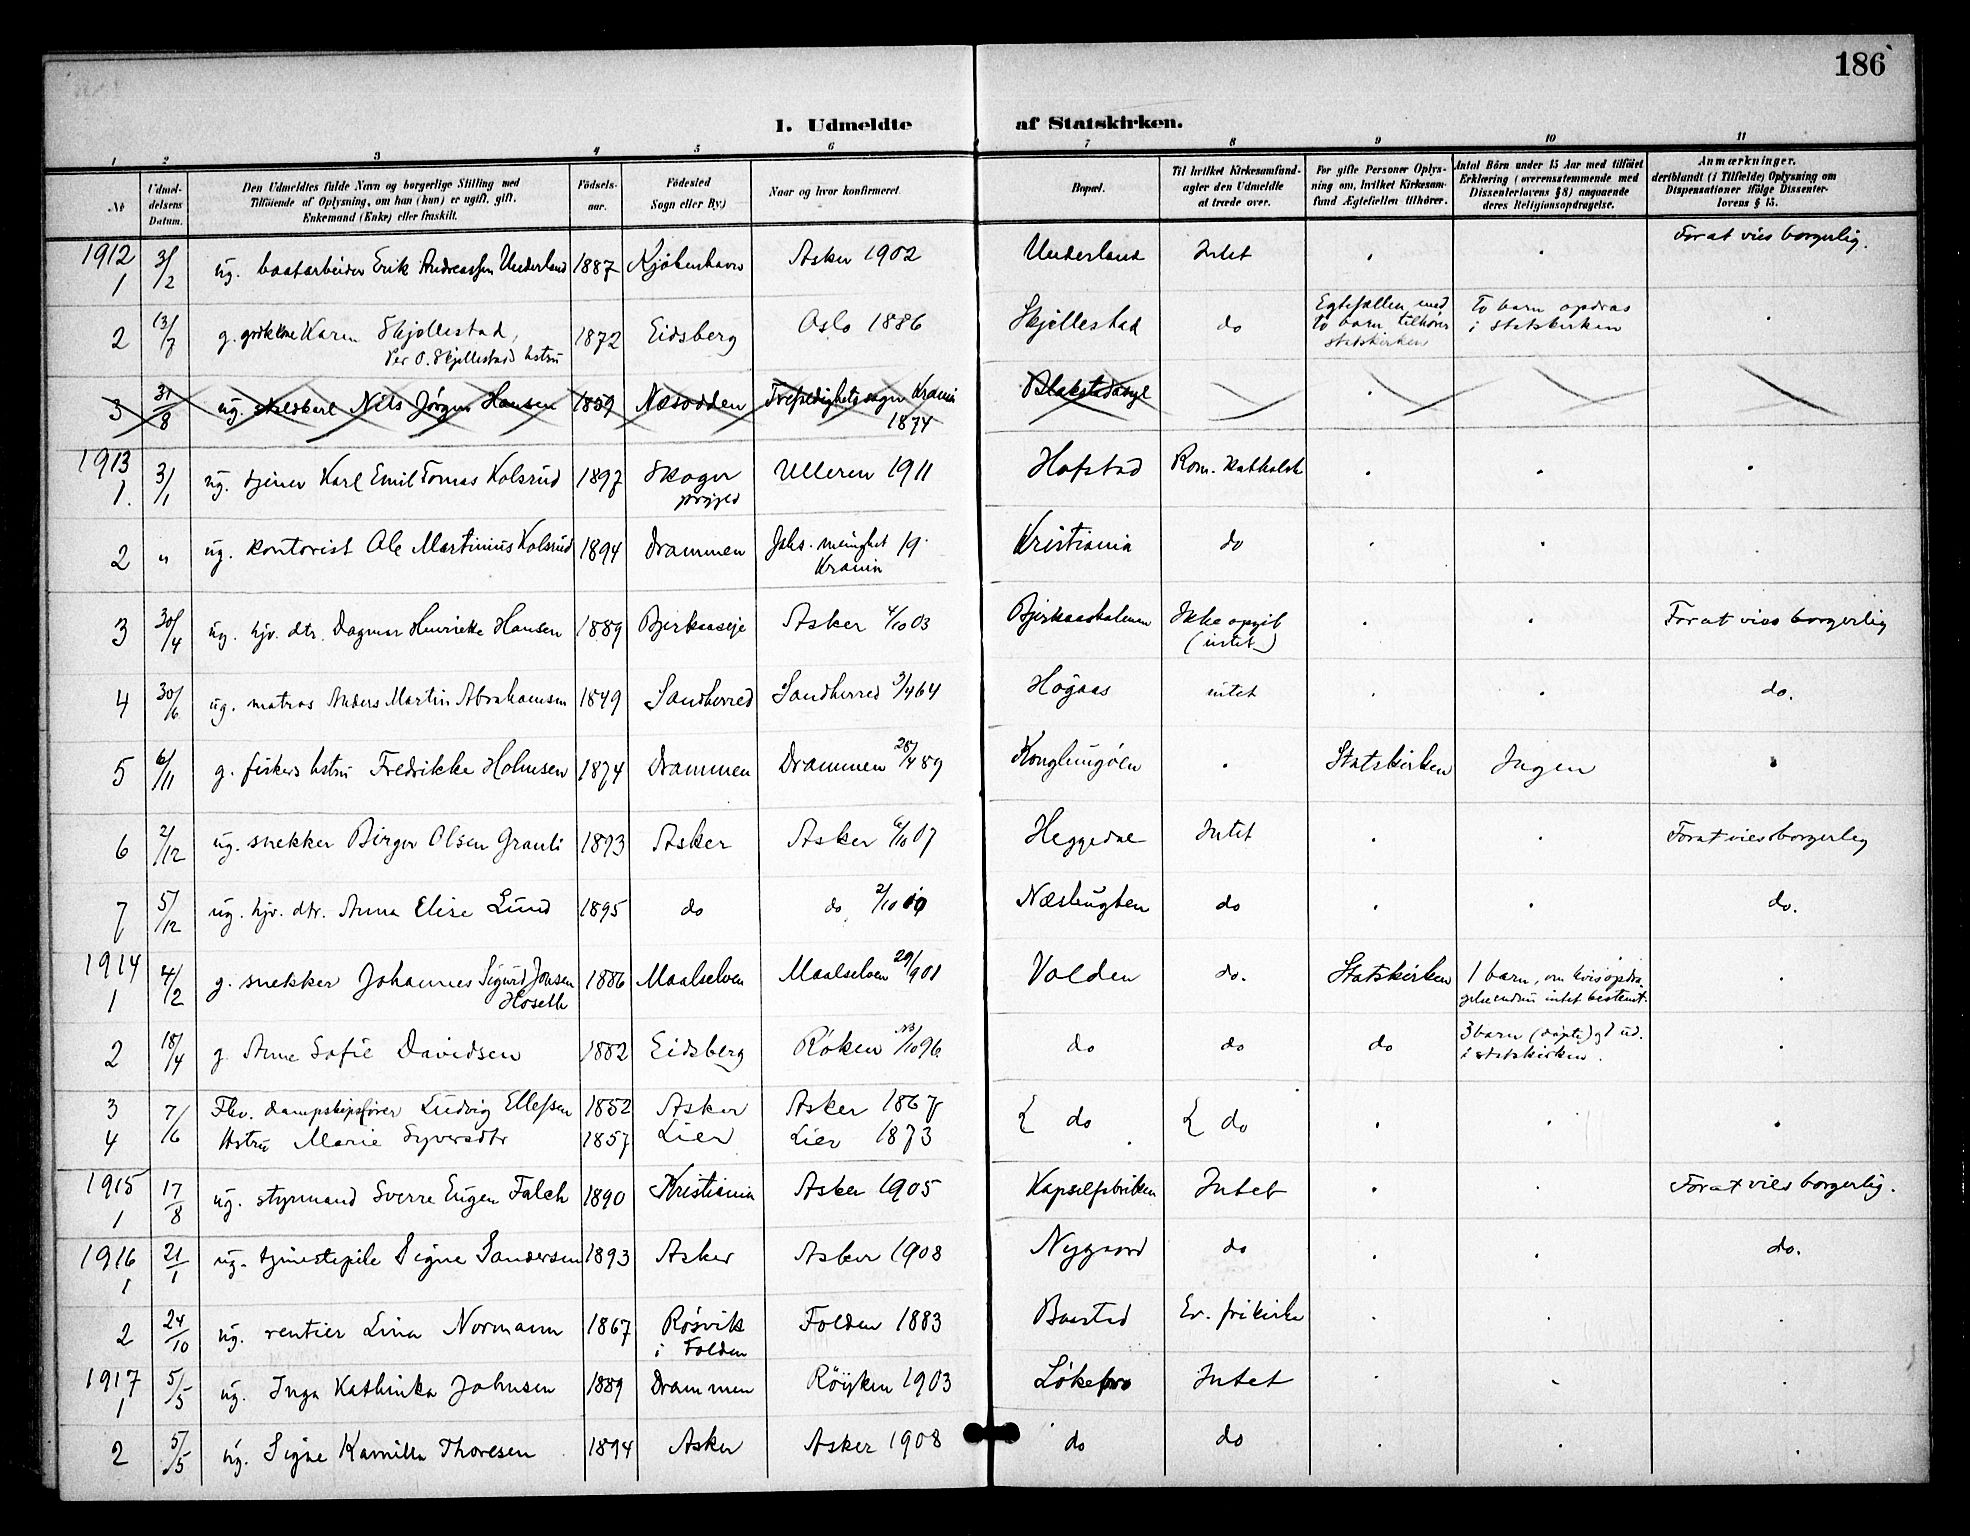 186
1. Udmeldte af Statskirken.
1 2 3 4 5 6 7 8 9 10 11
№ | Udmeldelsens Datum. | Den Udmeldtes fulde Navn og borgerlige Stilling med Tilföiende af Oplysning, om han (hun) er ugift, gift, Enkemand (Enke) eller fraskilt. | Födselsaar. | Födested Sogn eller By) | Naar og hvor konfirmeret. | Bopæl. | Til hvilket Kirkesamfund agter den Udmeldte at træde over. | For gifte Personer Oplysning om, hvilket Kirkesamfund Ægtefællen tilhörer. | Antal Börn under 15 Aar med tilföiet Erklæring (overensstemmende med Dissenterlovens § 8) angaaende deres Religionsopdragelse. | Anmærkninger, deriblandt (i Tilfælde) Oplysning om Dispensationer ifölge Dissenterlovens § 15.
1912 1 | 3/2 | ug. Erik Andreassen Underland | 1887 | Kjöbenhavn | Asker 1902 | Underland | Intet | . | . | For at vies borgerlig.
2 | 13/7 | g. Karen Skjellestad, Per O. Skjellestads hstru | 1872 | Eidsberg | Oslo 1886 | Skjellestad | do | Egtefællen med to barn tilhörer statskirken | To barn opdras i statskirken | .
3 | 31/8 | ug. Nils Jörgen Hansen | 1859 | Næsodden | Trefoldighets sogn Krania 1874 | Blakstad asyl | .
1913 1. | 3/1 | ug. tjener Karl Emil Tomas Kolsrud | 1897 | Skoger prgjeld | Ulleren 1911 | Hofstad | Rom. katholsk | . | . | .
2 | " | ug. kontorist Ole Martinius Kolsrud | 1894 | Drammen | Johs. menighet 19. Krania | Kristiania | do | . | . | .
3 | 30/4 | ug. hjv. dtr. Dagmar Henrikke Hansen | 1889 | Bjerkaaseje | Asker 4/10 03 | Bjerkaasholmen | Ikke opgit (intet) | . | . | For at vies borgerlig
4 | 30/6 | ug. matros Anders Martin Abrahamsen | 1849 | Sandherred | Sandherred 3/4 64 | Högaas | intet | . | . | do.
5 | 6/11 | g. fiskers hstru Fredrikke Holmsen | 1874 | Drammen | Drammen 28/4 89 | Konglungöen | . | Statskirken | Ingen | .
6 | 2/12 | ug. snekker Birger Olsen Grauli | 1893 | Asker | Asker 6/10 07 | Heggedal | Intet | . | . | For at vies borgerlig
7 | 5/12 | ug. hjv. dtr. Anna Elise Lund | 1895 | do | do 2/10 | Næsbugten | do | . | . | do.
1914 1 | 4/2 | g. snekker Johannes Sigurd Jonsen Hoseth | 1886 | Maalselven | Maalselven 29/9 01 | Volden | do. | Statskirken | 1 barn, om hvis opdragelse endnu intet bestemt. | .
2 | 18/4 | g. Anne Sofie Davidsen | 1882 | Eidsberg | Röken /10 96 | do | do | do | 3 barn (döpte) i statskirken. | .
3 | 7/6 | Fhv. dampskipsförer Ludvig Ellefsen | 1852 | Asker | Asker 1867 | { do | { do | . | . | .
4 | Hstru Marie Syversdtr | 1857 | Lier | Lier 1873
1915 1 | 17/8 | ug. styrmand Sverre Eugen Falch | 1890 | Kristiania | Asker 1905 | Kapselfabriken | Intet | . | . | For at vies borgerlig.
1916 1 | 21/1 | ug. tjenestepike Signe Sandersen | 1893 | Asker | Asker 1908 | Nygaard | do | . | . | do.
2 | 24/10 | ug. rentier Lina Normann | 1867 | Rösvik i Folden | Folden 1883 | Baastad | Ev. frikirke | . | . | .
1917 1 | 5/5 | ug. Inga Kathinka Johnsen | 1889 | Drammen | Röyken 1903 | Lökebro | Intet | . | . | .
2 | 5/5 | ug. Signe Kamilla Thoresen | 1894 | Asker | Asker 1908 | do | do | . | . | .